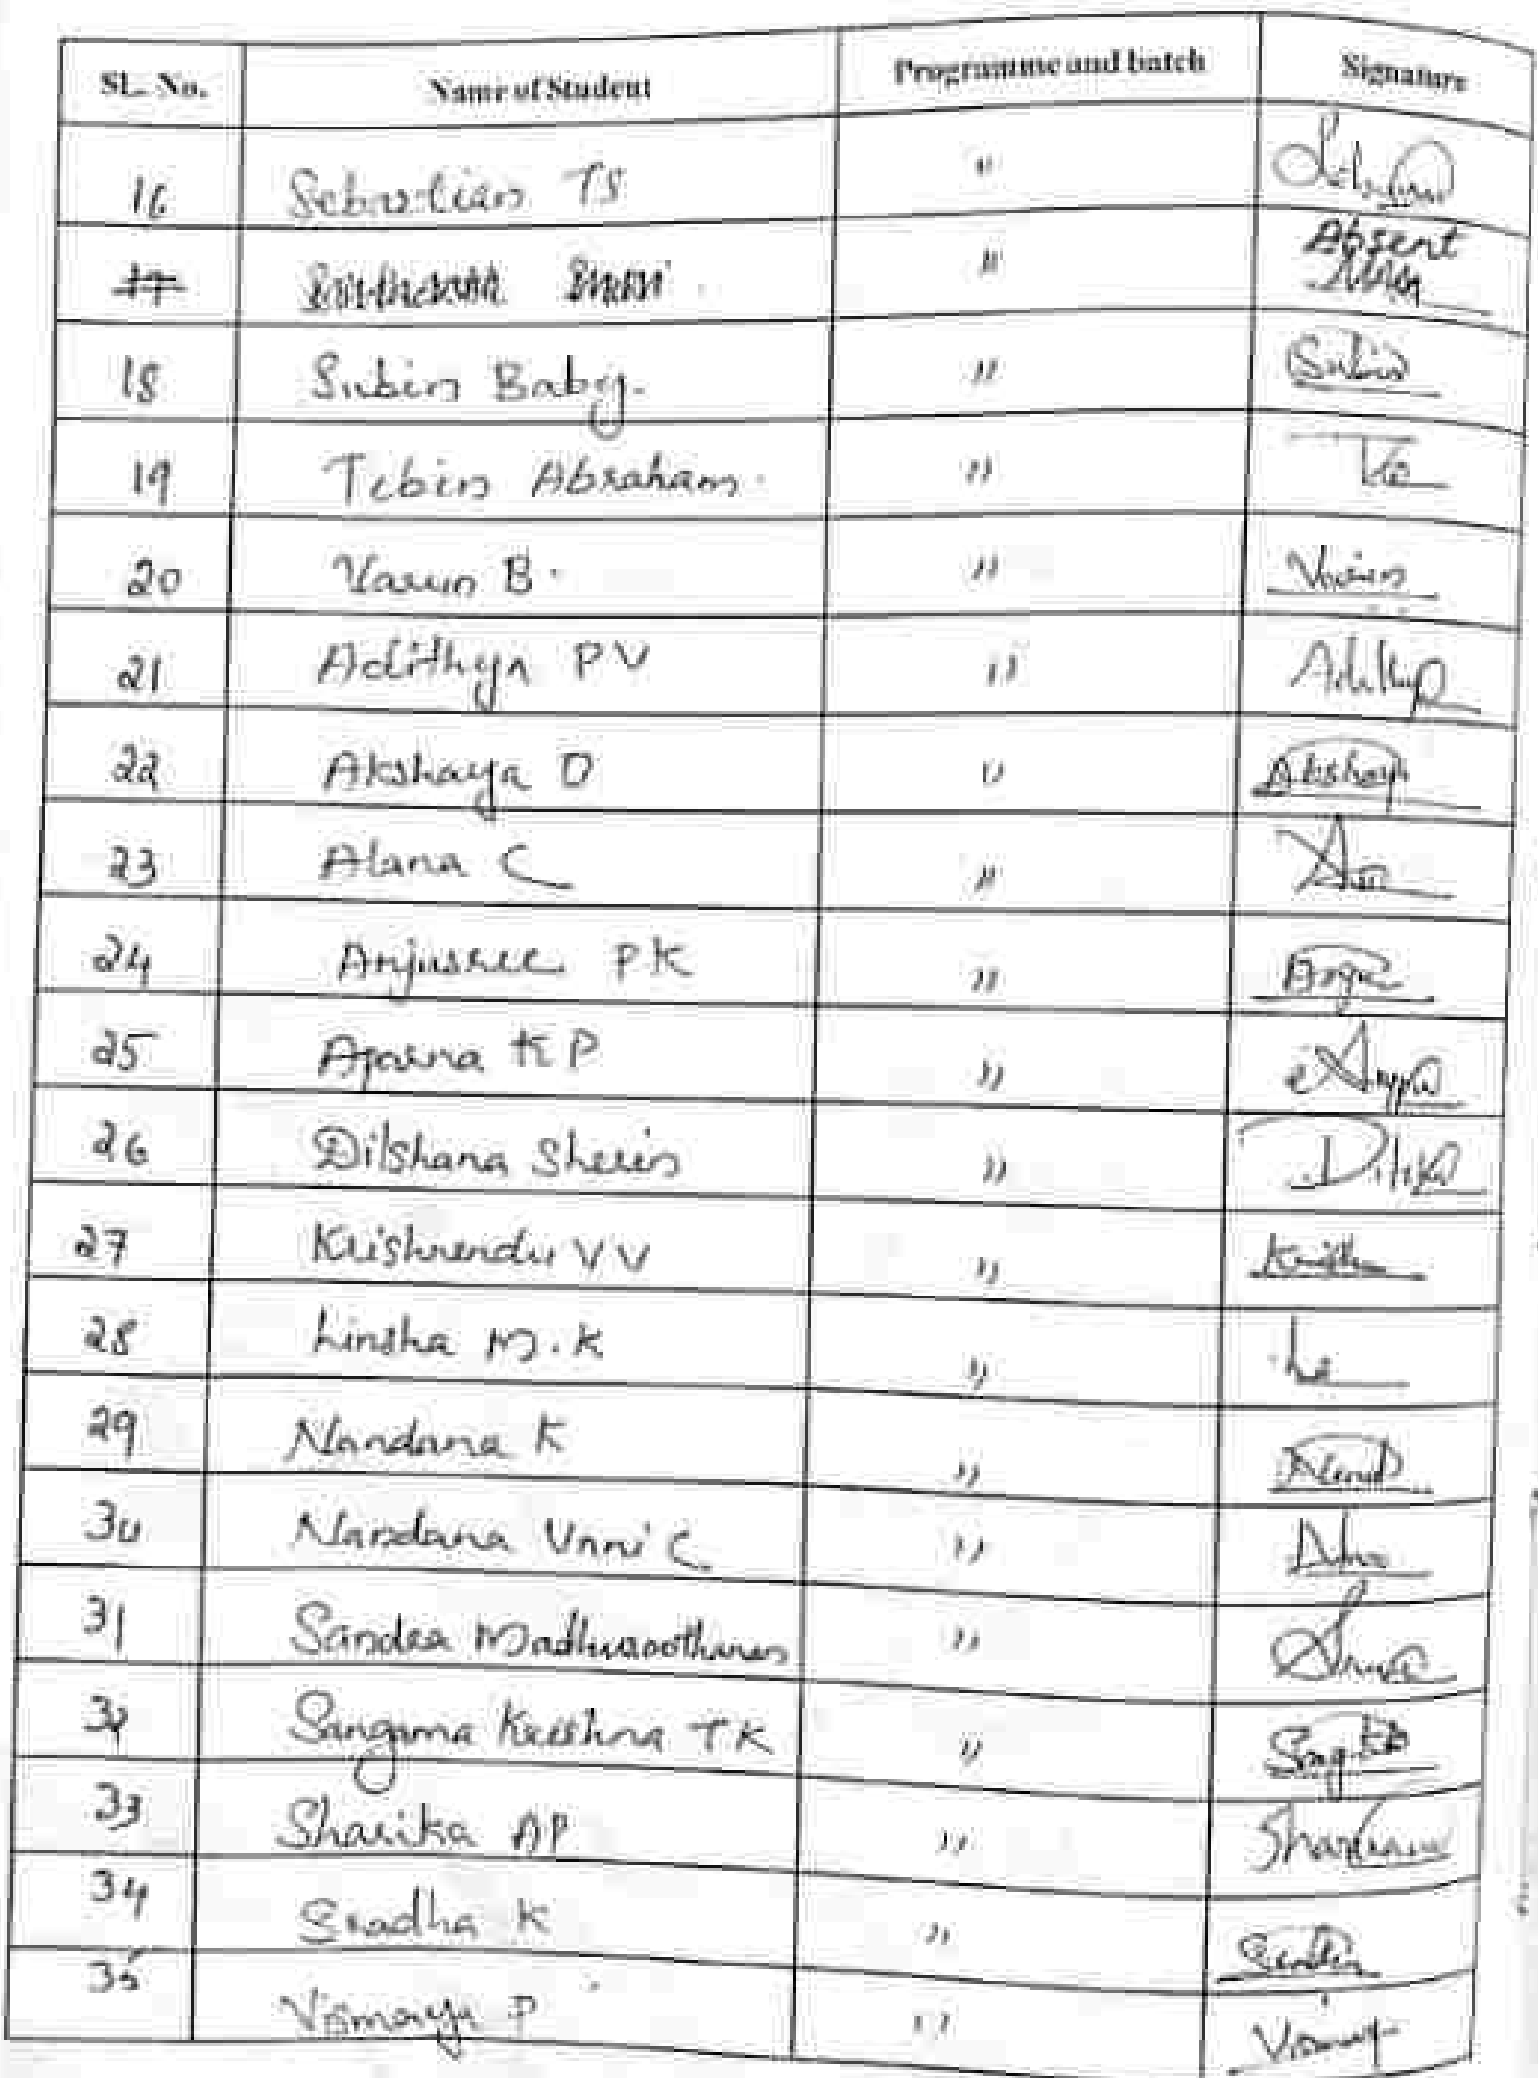 SL. No. Name of Student Programme and batch Signature
16 Sebastian TS "
17 " Absent
18 Subin Baby. " Subin
19 Tebin Abraham. "
20 Varun B. " Varun
21 Adithya PV "
22 Akshaya O " Akshaya
23 Alana C "
24 Anjusree PK "
25 Aparna KP "
26 Dilshana Sherin "
27 Krishnendu VV "
28 Linsha M.K "
29 Nandana K "
30 Nandana Unni C "
31 Sandra Madhusoothanan "
32 Sangama Krishna TK "
33 Sharika AP "
34 Sradha K "
35 Vismaya P "